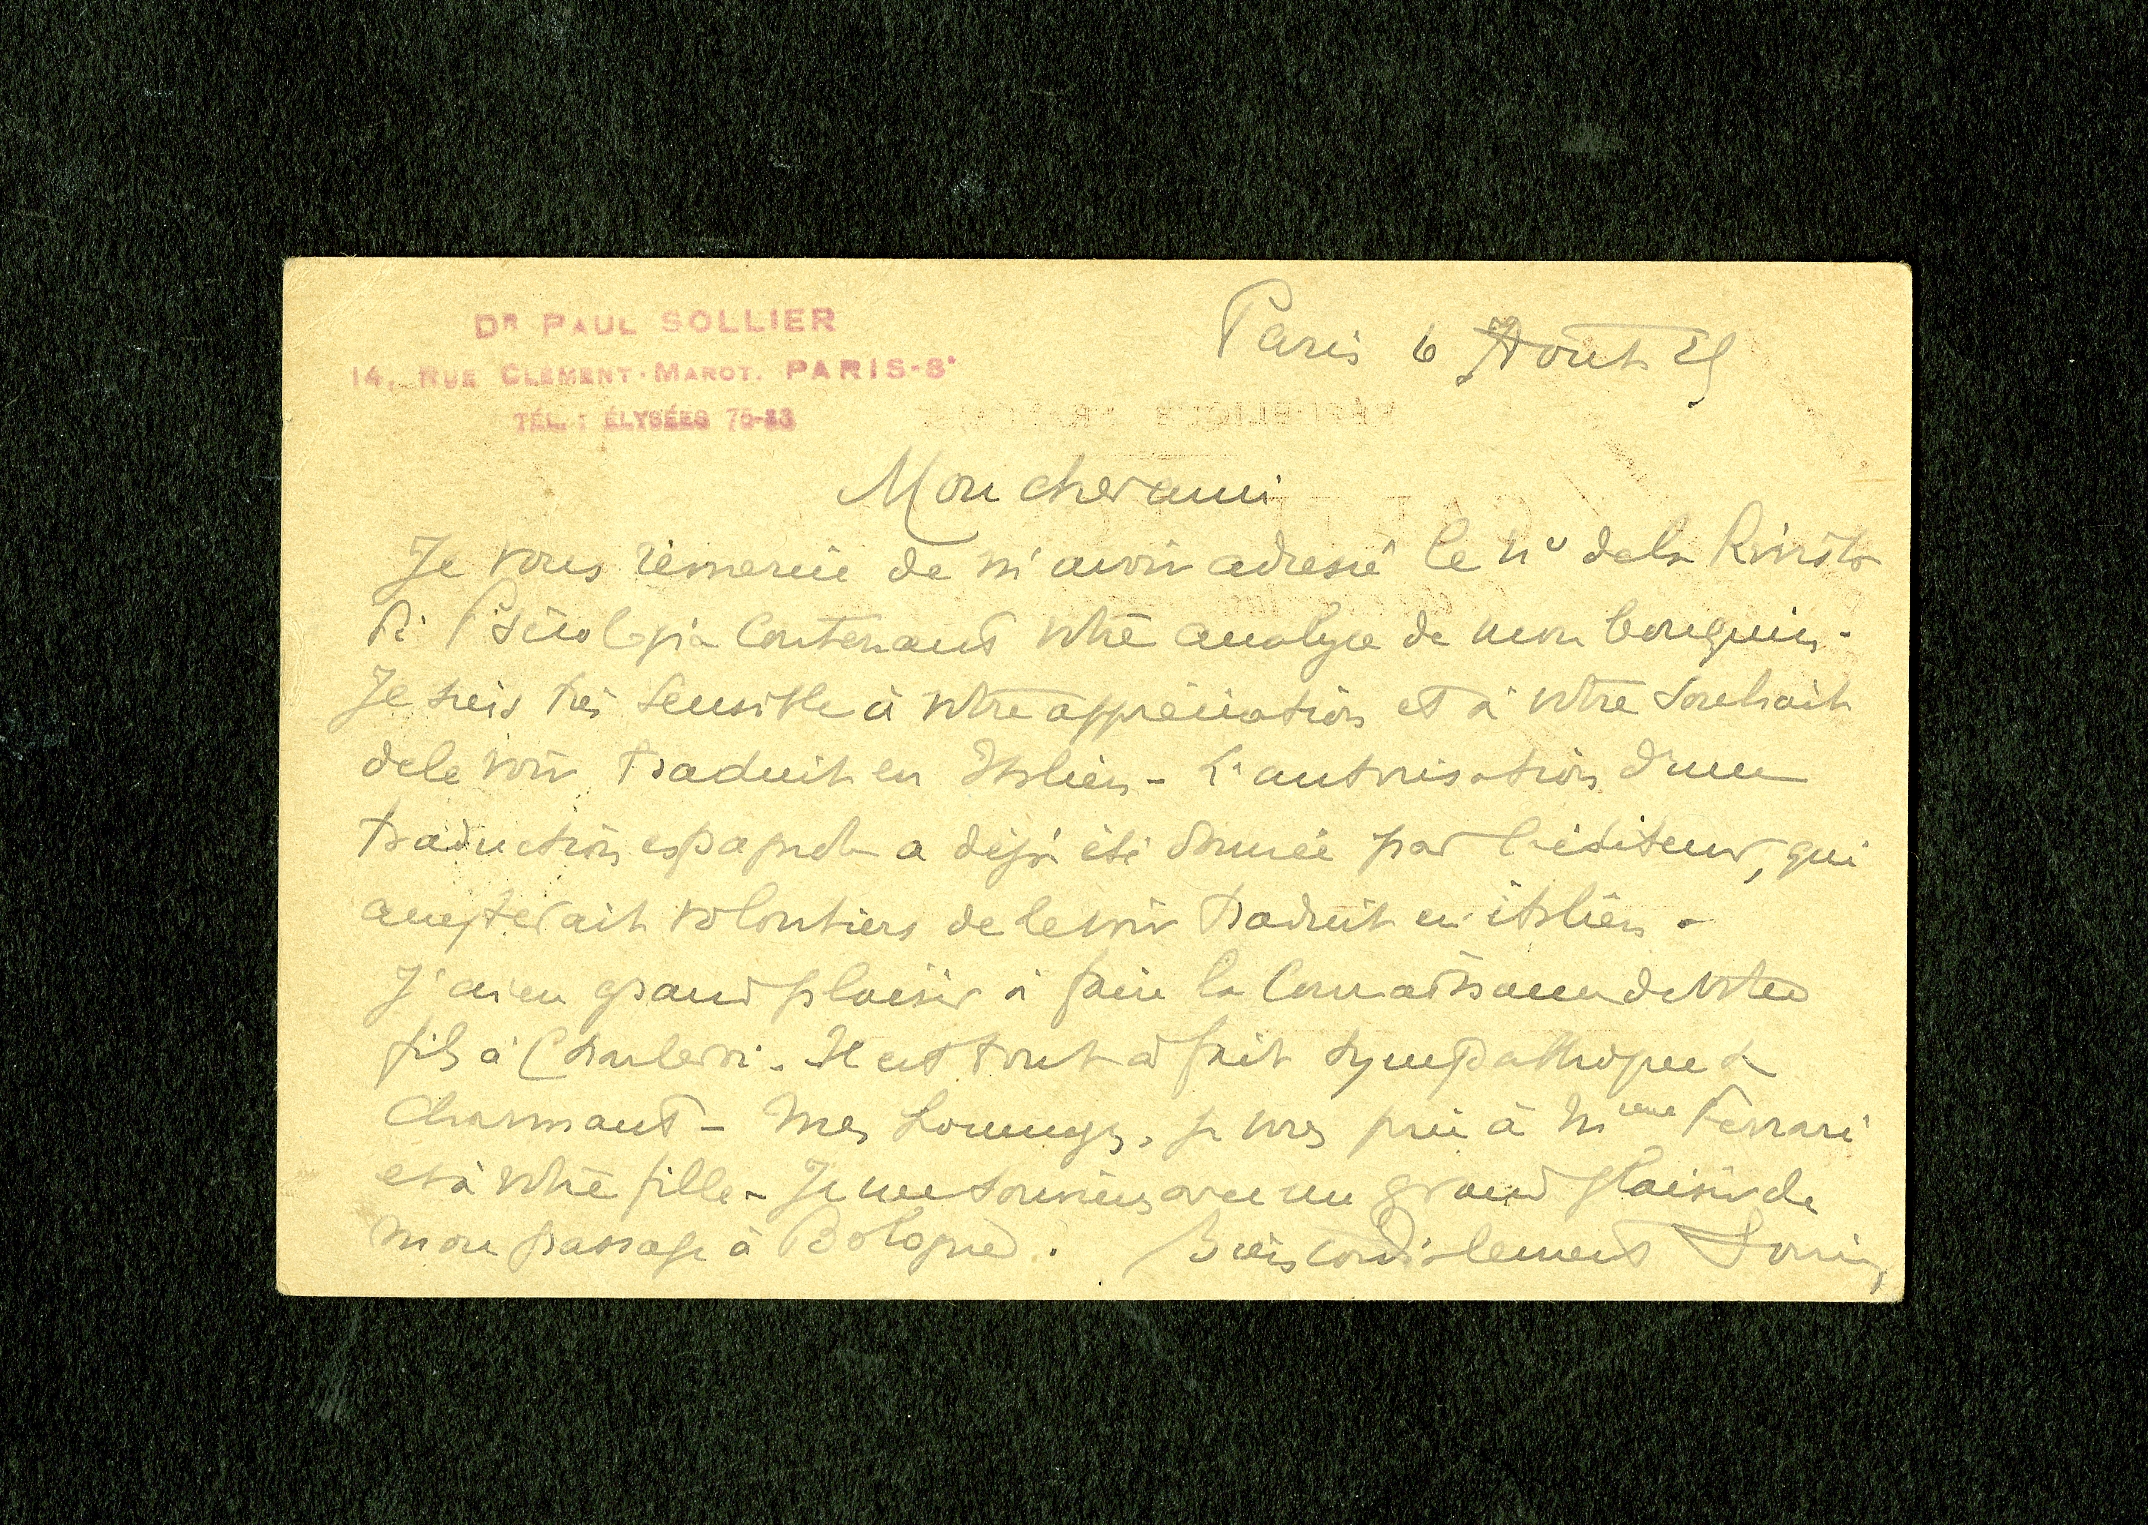 DR PAUL SOLLIER
14, RUE CLÉMENT-MAROT. PARIS-8e
TÉL. : ÉLYSÉES 75-33
Paris 6 Août 25
Mon cher ami
Je vous remercie de m'avoir adressé le no de la Rivista
di Psicologia contenant votre analyse de mon bouquin.
Je suis très sensible à votre appréciation et à votre souhait
de le voir traduit en Italien - L'autorisation d'une
traduction espagnole a déjà été donnée par l'éditeur, qui
accepterait volontiers de le voir traduit en italien -
J'ai eu grand plaisir à faire la connaissance de votre
fils à Charleroi. Il est tout à fait sympathique &
charmant - Mes hommages, je vous prie à Mme Ferrari
et à votre fille - Je me souviens avec un grand plaisir de
mon passage à Bologne. Bien cordialement